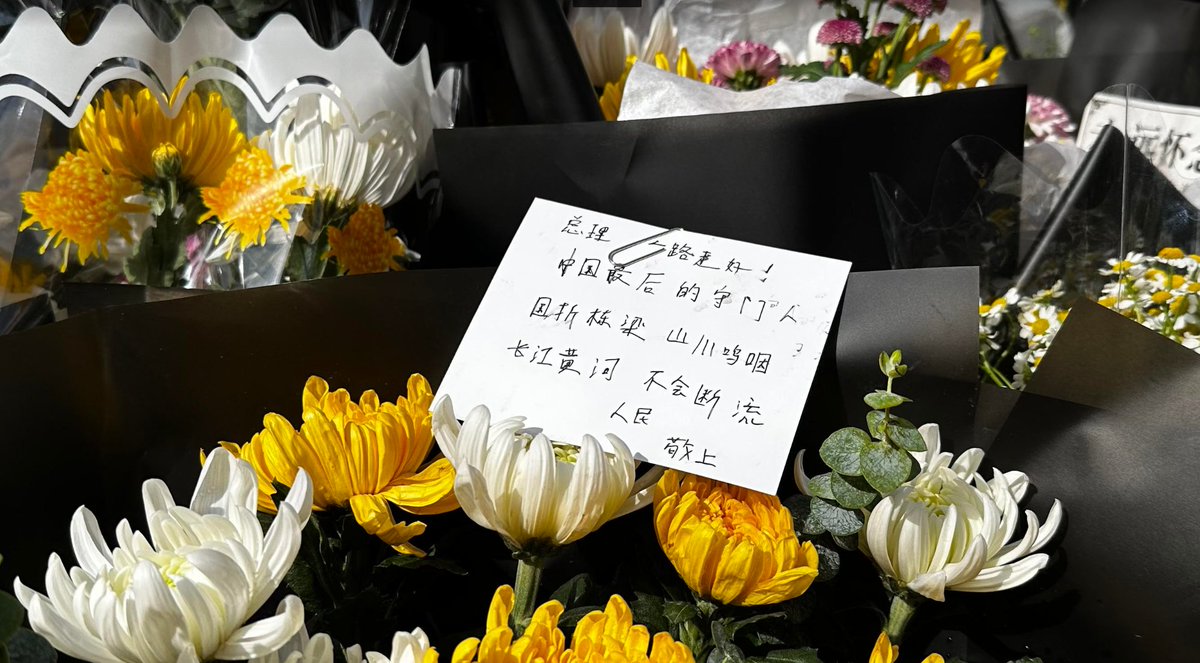 总理 一路走好！
中国最后 的守门人
国折栋梁 山川呜咽
长江黄河 不会断流
人民
敬上
怀念